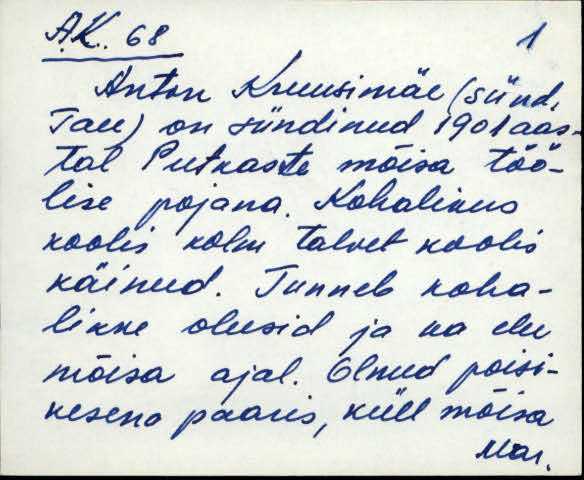 A.K. 68
1
Anton Kruusimäe (sünd.
Tau) on sündinud 1901 aas-
tal Putkaste mõisa töö-
lise pojana. Kohalikus
koolis kolm talvet koolis
käinud. Tunneb koha-
likke olusid ja ka elu
mõisa ajal. Olnud poisi-
kesena paaris, küll mõisa